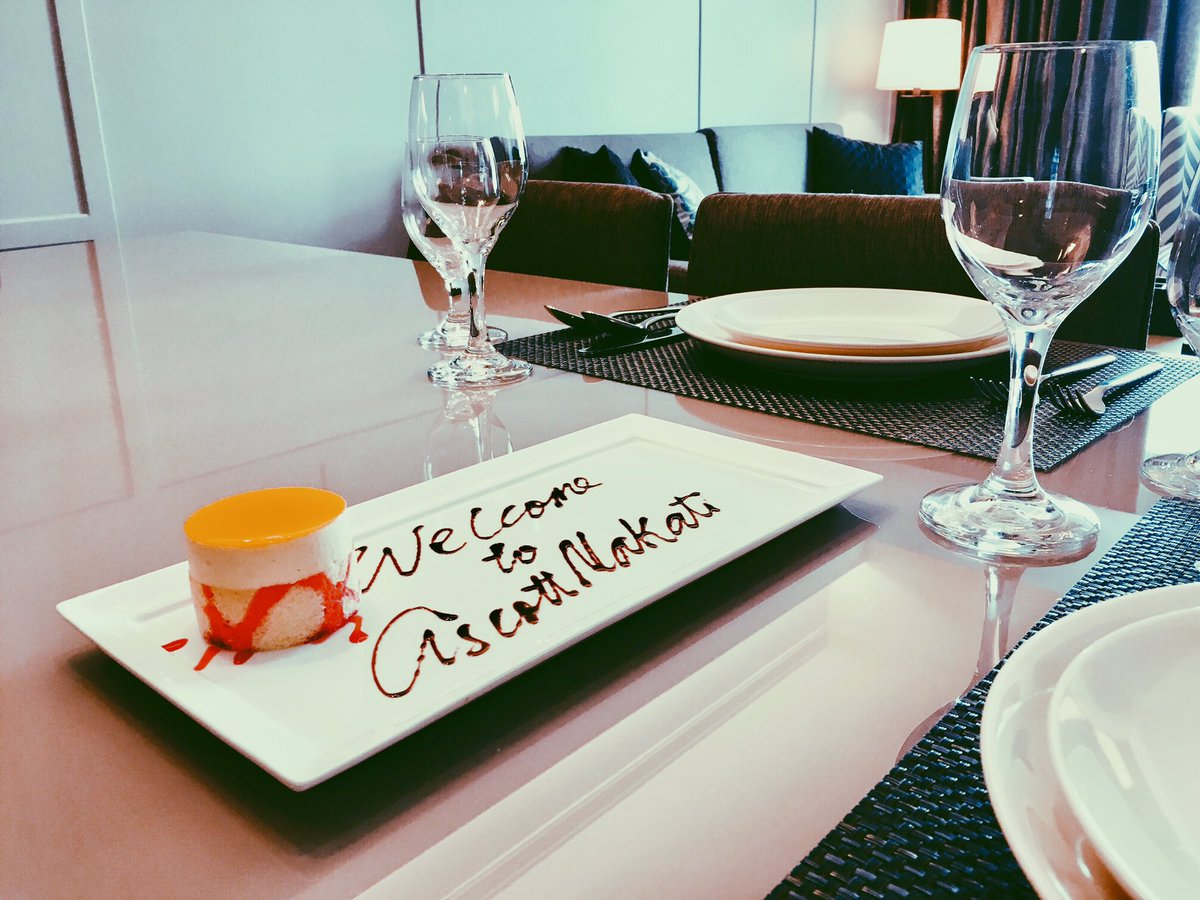 Welcome
to
Ascott Makati